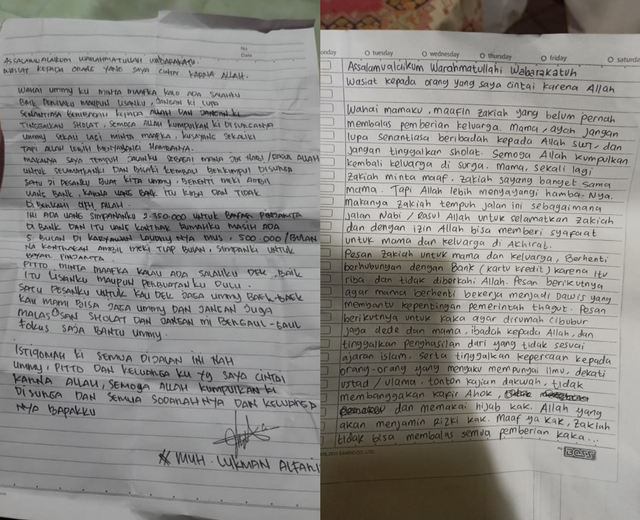 No
Date
ASSALAMUALAIKUM WARAHMATULLAH WABARAKATU
WASIAT KEPADA ORANG YANG SAYA CINTAI KARNA ALLAH.
WAHAI UMMY KU MINTA MAAFKA KALO ADA SALAHKU
BAIK PERILAKU MAUPUN LISANKU, JANGAN KI LUPA
SENANTIASA BERIBADAH KEPADA ALLAH DAN JANGAN KI
TINGGALKAN SHOLAT, SEMOGA ALLAH KUMPULKAN KI DI SURGANYA
UMMY SEKALI LAGI MINTA MAAFKA, KUSAYANG SEKALIKI
TAPI ALLAH LEBIH MENYAYANGI HAMBANYA.
MAKANYA SAYA TEMPUH JALANKU SEBAGAI MANA JLN NABI/RASUL ALLAH
UNTUK SELAMATKANKI DAN BISAKI KEMBALI BERKUMPUL DI SURGA
SATU JI PESANKU BUAT KITA UMMY, BERHENTI MEKI AMBIL
UANG BANK, KARNA UANG BANK ITU RIBA DAN TIDAK
DI BERKAHI OLEH ALLAH
INI ADA UANG SIMPANANKU 2.350.000 UNTUK BAYAR POTONGTA
DI BANK DAN ITU UANG KONTRAK RUMAHKU MASIH ADA
5 BULAN DI KARYAWAN LAUNDRYNYA IMUS, 500.000/BULAN
NA KONTRAKAN AMBIL MEKI TIAP BULAN, SIMPANKI UNTUK
BAYAR PINJAMTA
PITTO MINTA MAAFKA KALAU ADA SALAHKU DEK, BAIK
ITU LISANKU MAUPUN PERBUATANKU DULU.
SATU PESANKU UNTUK KAU DEK JAGA UMMY BAEK-BAEK
KAU MAMI BISA JAGA UMMY DAN JANGAN JUGA
MALAS SHOLAT DAN JANGAN MI BERGAUL-GAUL
FOKUS SAJA BANTU UMMY.
ISTIQOMAH KI SEMUA DI JALAN INI NAH
UMMY, PITTO DAN KELUARGA KU YG SAYA CINTAI
KARNA ALLAH, SEMOGA ALLAH KUMPULKAN KI
DI SURGA DAN SEMUA SODARAH NYA DAN KELUARGA
NYA BAPAKKU
MUH. LUKMAN ALFARI
onday tuesday wednesday thursday friday saturd
Assalamualaikum Warahmatullahi Wabarakatuh
Wasiat kepada orang yang saya cintai karena Allah
Wahai mamaku, maafin Zakiah yang belum pernah
membalas pemberian keluarga. mama, ayah jangan
lupa senantiasa beribadah kepada Allah swt, dan
jangan tinggalkan sholat. Semoga Allah kumpulkan
kembali keluarga di surga. mama, sekali lagi
zakiah minta maaf. zakiah sayang banget sama
mama. Tapi Allah lebih menyayangi hamba-Nya.
makanya zakiah tempuh jalan ini sebagaimana
jalan Nabi / Rasul Allah untuk selamatkan zakiah
dan dengan izin Allah bisa memberi syafaat
untuk mama dan keluarga di Akhirat.
Pesan Zakiah untuk mama dan keluarga, Berhenti
berhubungan dengan Bank (kartu kredit) karena itu
riba dan tidak diberkahi Allah. Pesan berikutnya
agar mama berhenti bekerja menjadi Dawis yang
membantu kepentingan pemerintah thagut. Pesan
berikutnya untuk kaka agar dirumah cibubur
jaga dede dan mama, ibadah kepada Allah, dan
tinggalkan penghasilan dari yang tidak sesuai
ajaran islam. serta tinggalkan kepercaan kepada
orang-orang yang mengaku mempunyai ilmu, dekati
ustad / ulama, tonton kajian dakwah, tidak
membanggakan kapir Ahok,
dan memakai hijab kak. Allah yang
akan menjamin rizki kak. Maaf ya kak, zakiah
tidak bisa membalas semua pemberian kaka...
BOSS